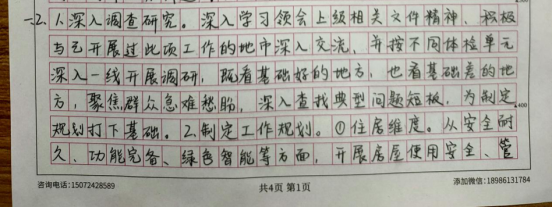 二、2. 1.深入调查研究。深入学习领会上级相关文件精神、积极
与已开展过此项工作的地市深入交流，并按不同体检单元
深入一线开展调研，既看基础好的地方，也看基础差的地
方，聚焦群众急难愁盼，深入查找典型问题短板，为制定
400
规划打下基础。2.制定工作规划。①住居维度。从安全耐
久、功能完备、绿色智能等方面，开展房屋使用安全、管
咨询电话：15072428589
共4页 第1页
添加微信：18986131784